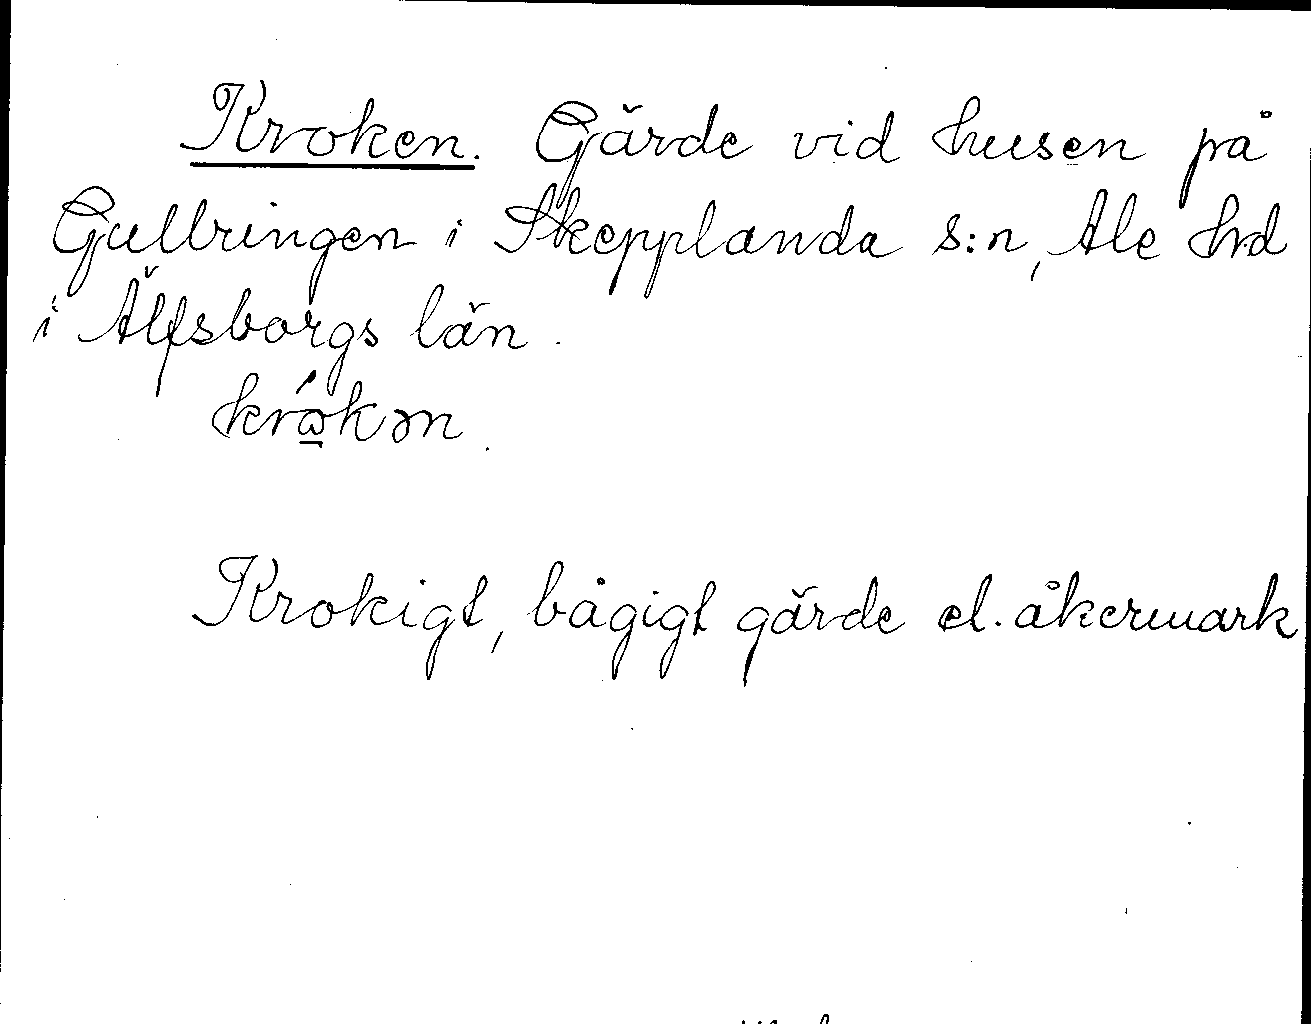 Kroken. Gärde vid husen på
Gullringen i Skepplanda s:n, Ale hrd
i Älfsborgs län.
Krokigt, bågigt gärde el. åkermark